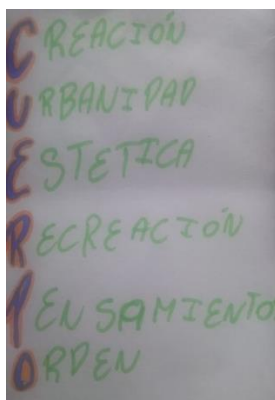 CREACIÓN
URBANIDAD
ESTETICA
RECREACIÓN
PENSAMIENTO
ORDEN